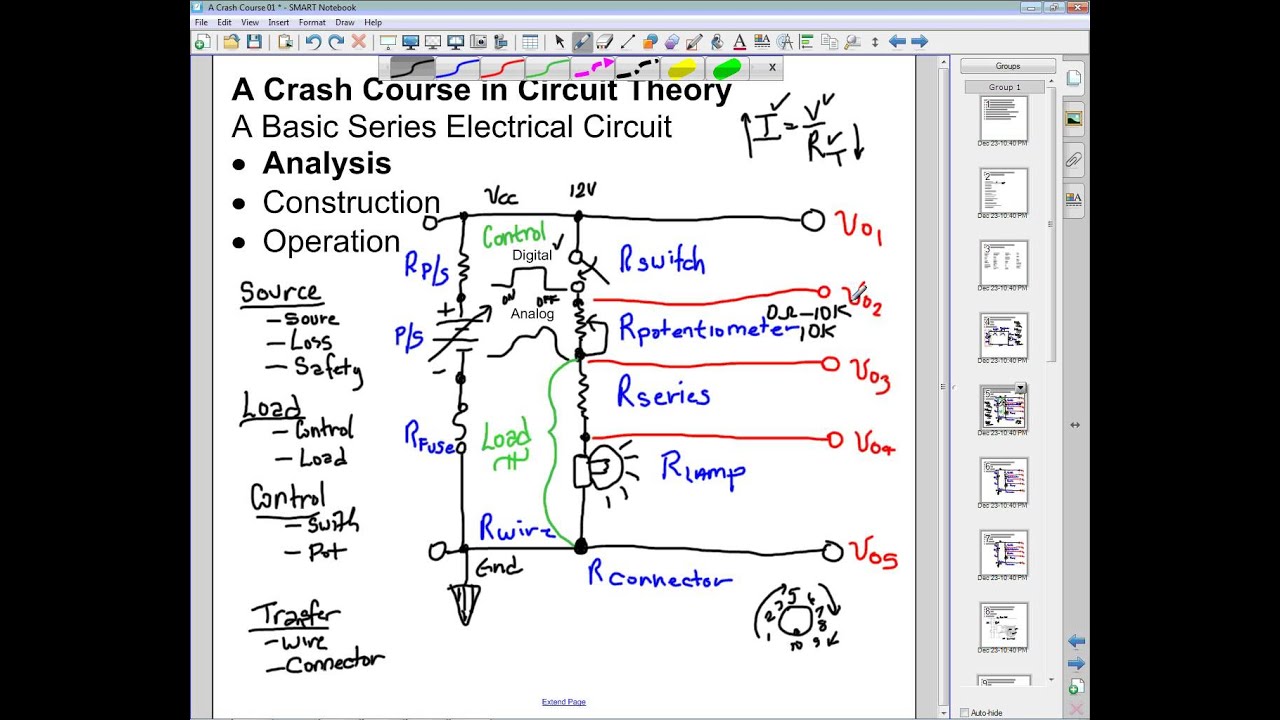 A Crash Course 01 * - SMART Notebook
File Edit View Insert Format Draw Help
A Crash Course in Circuit Theory
A Basic Series Electrical Circuit
• Analysis
• Construction
• Operation
I = V
RT
Vcc
12V
Vo1
Control
Digital
RP/S
Rswitch
ON OFF
Vo2
0Ω-10K
Analog
Rpotentiometer
10K
+
P/S
-
Vo3
Source
- Soure
- Loss
- Safety
Rseries
Load
- Control
- Load
RFuse
Load
Vo4
Rlamp
Control
- Swith
- Pot
Rwire
Gnd
Vo5
Rconnector
1 2 3 5 6 7 8 9 10
Tranfer
- Wire
- Connector
Extend Page
Groups
Group 1
1
Dec 23-10:40 PM
2
Dec 23-10:40 PM
3
Dec 23-10:40 PM
4
Dec 23-10:40 PM
5
Dec 23-10:40 PM
6
Dec 23-10:40 PM
7
Dec 23-10:40 PM
8
Dec 23-10:40 PM
9
Auto-hide